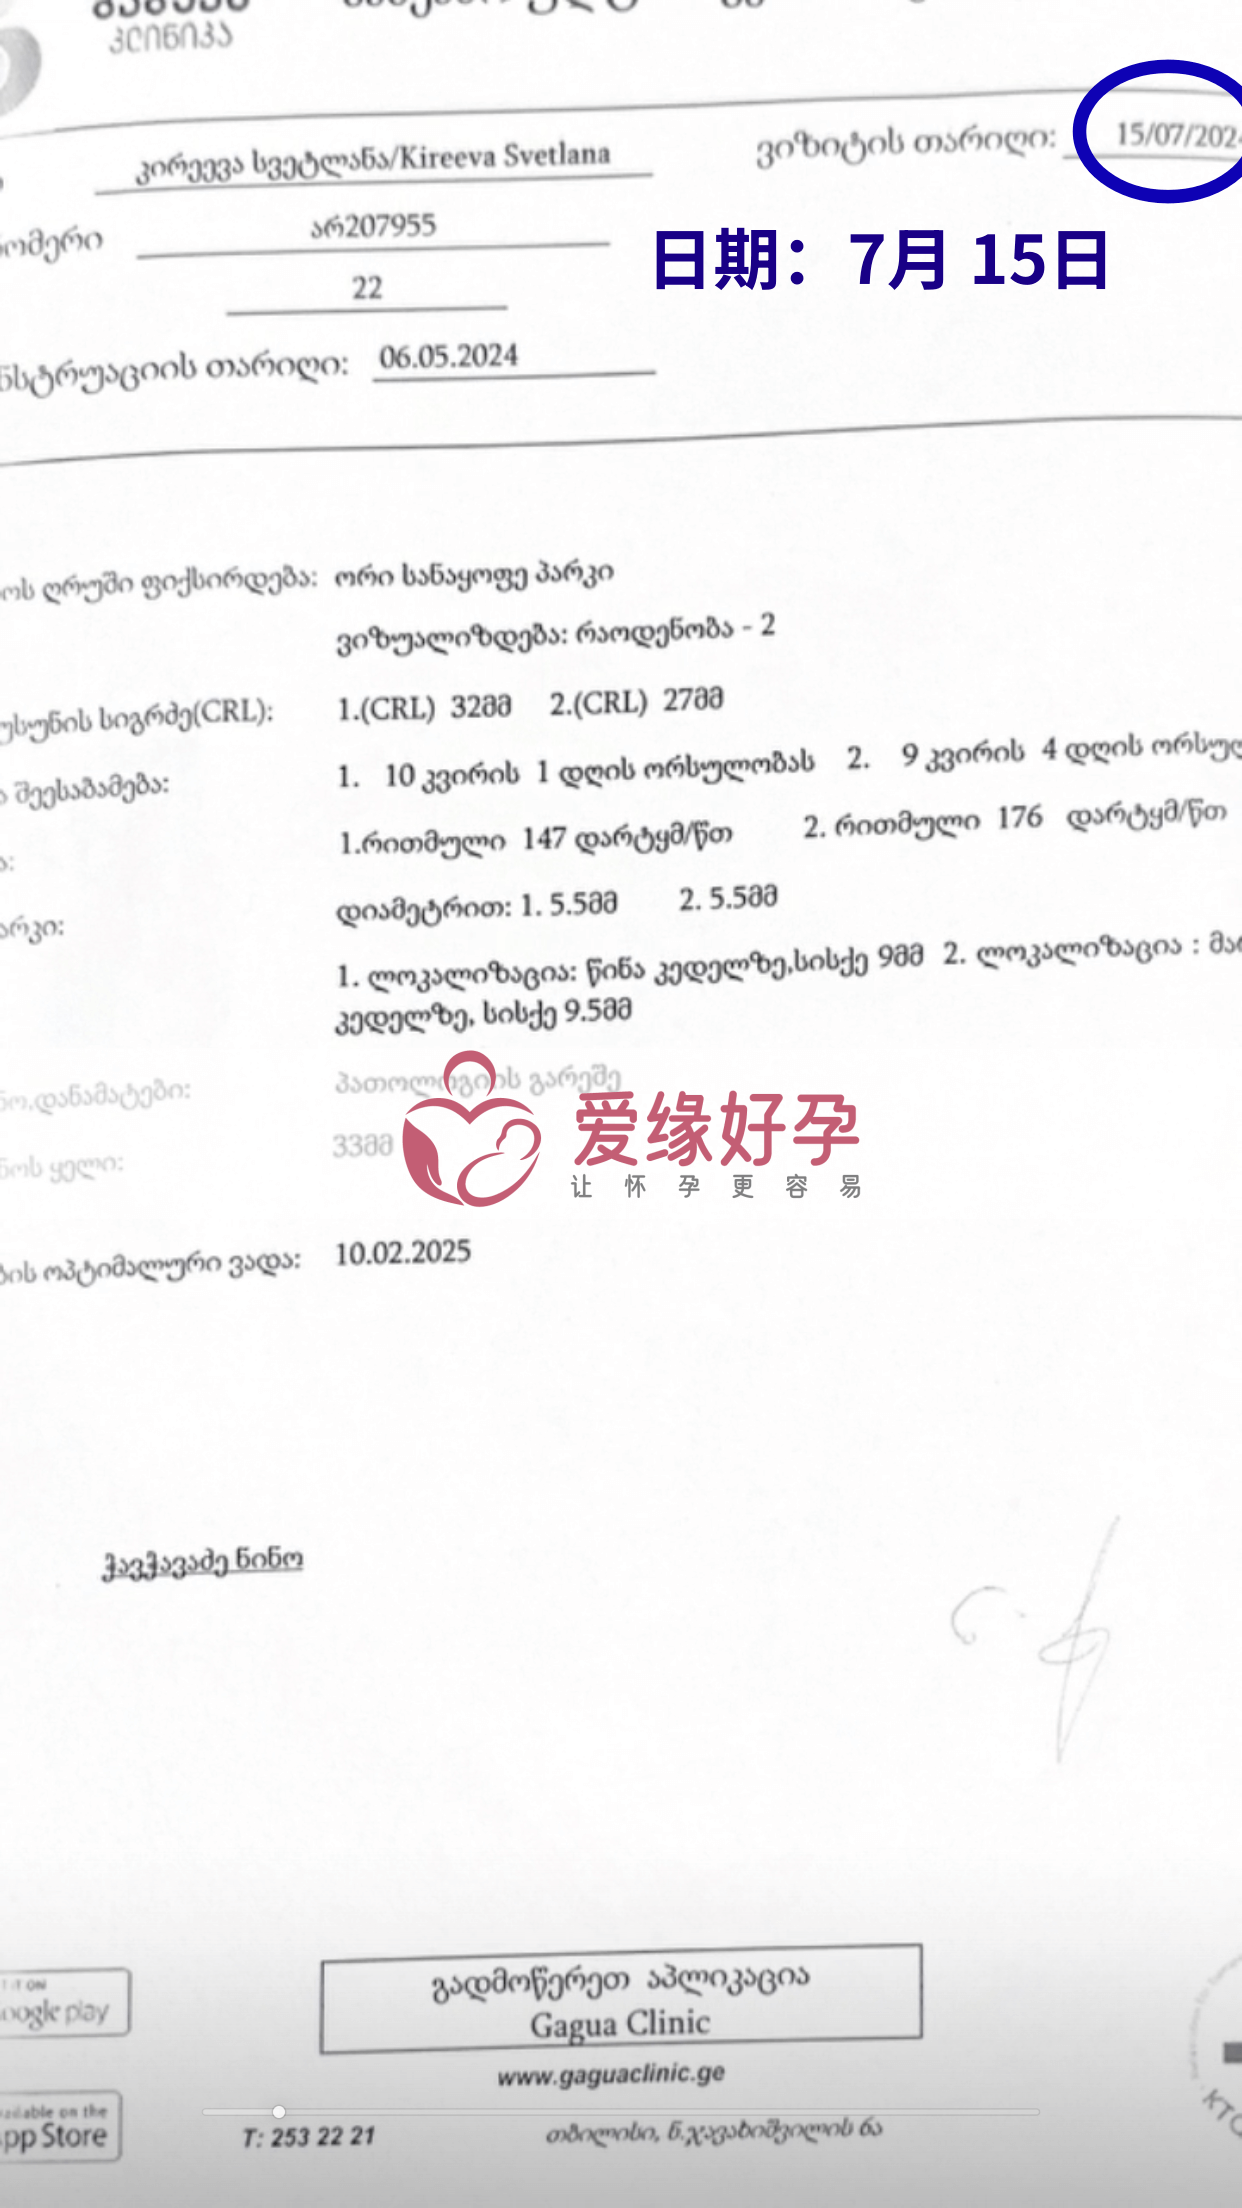 კლინიკა
კირეევა სვეტლანა/Kireeva Svetlana
ვიზიტის თარიღი: 15/07/202
არ207955
日期：7月 15日
22
06.05.2024
თარიღი:
ღრუში ფიქსირდება: ორი სანაყოფე პარკი
ვიზუალიზდება: რაოდენობა - 2
სიგრძე(CRL): 1.(CRL) 32მმ 2.(CRL) 27მმ
შეესაბამება: 1. 10 კვირის 1 დღის ორსულობას 2. 9 კვირის 4 დღის
1.რითმული 147 დარტყმ/წთ 2. რითმული 176 დარტყმ/წთ
დიამეტრით: 1. 5.5მმ 2. 5.5მმ
1. ლოკალიზაცია: წინა კედელზე,სისქე 9მმ 2. ლოკალიზაცია :
კედელზე, სისქე 9.5მმ
დანამატები: პათოლოგიის გარეშე
ყელი: 33მმ
爱缘好孕
让怀孕更容易
ოპტიმალური ვადა: 10.02.2025
ჭავჭავაძე ნინო
გადმოწერეთ აპლიკაცია
Gagua Clinic
play
www.gaguaclinic.ge
on the
Store
T: 253 22 21
თბილისი, ნ.ჯავახიშვილის 6ა